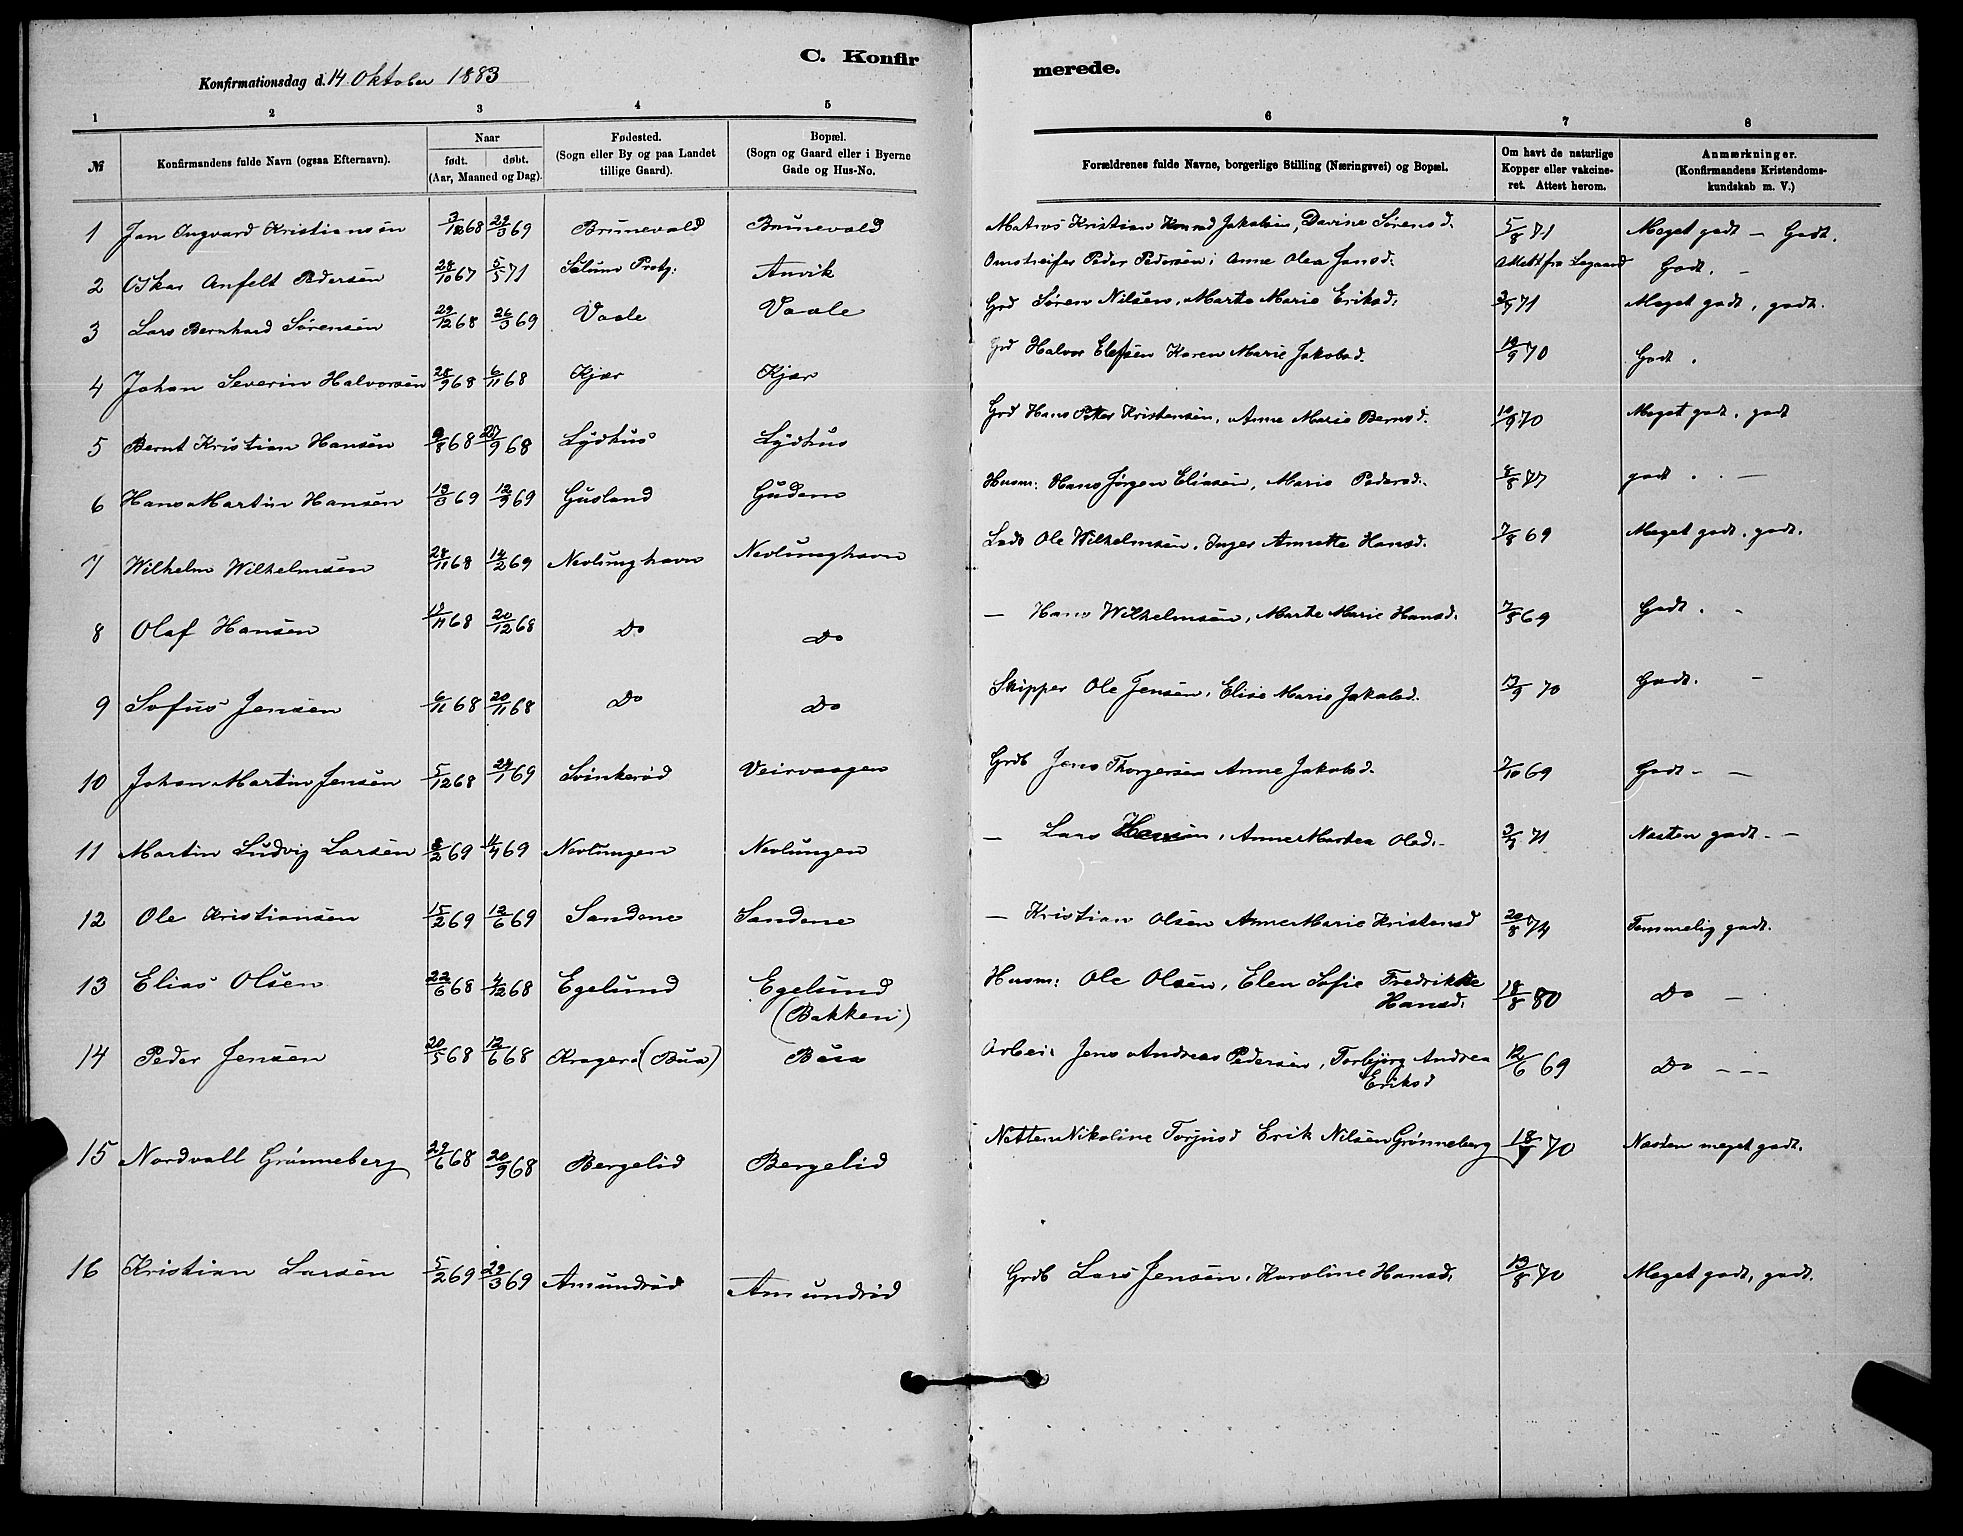 C. Konfirmerede.
Konfirmationsdag d. 14 Oktober 1883
1 2 3 4 5 6 7 8
№ Konfirmandens fulde Navn (ogsaa Efternavn). Naar født. døbt. (Aar, Maaned og Dag). Fødested. (Sogn eller By og paa Landet tillige Gaard). Bopæl. (Sogn og Gaard eller i Byerne Gade og Hus-No. Forældrenes fulde Navne, borgerlige Stilling (Næringsvei) og Bopæl. Om havt de naturlige Kopper eller vakcineret. Attest herom. Anmærkninger. (Konfirmandens Kristendomskundskab m. V.)
1 Jan Ingvard Kristiansen 3/12 68 29/3 69 Brunevald Brunevald Matros Kristian Konrad Jakobsen, Davine Sørensd. 5/8 71 Meget godt - Godt.
2 Oskar Anfelt Pedersen 28/10 67 5/5 71 Anvik Omstreifer Peder Pedersen; Anne Olea Jansd: Godt. -
3 Lars Bernhard Sørensen 29/12 68 26/3 69 Vaale Vaale Grd Søren Nilsen, Marte Marie Eriksd: 71 Meget godt, godt.
4 Johan Severin Halvorsen 28/9 68 6/11 68 Kjær Kjær Grd Halvor Elefsen Karen Marie Jakobsd. 19/9 70 Godt.
5 Bernt Kristian Hansen 9/8 68 27/9 68 Lydhus Lydhus Grd Hans Petter Kristensen, Anne Marie Bernsd. 10/9 70 Meget godt, godt
6 Hans Martin Hansen 13/3 69 12/9 69 Gusland Gudem Husm: Hans Jørgen Eliasen, Marie Pedersd: godt. . -
7 Wilhelm Wilhelmsen 28/11 68 14/2 69 Nevlunghavn Nevlunghavn Lods Ole Wilhelmsen, Inger Annette Hansd. 7/8 69 Meget godt, godt.
8 Olaf Hansen 17/11 68 20/12 68 Do Do - Hans Wilhelmsen, Marte Marie Hansd. 7/8 69 Godt. -
9 Sofus Jensen 6/11 68 20/11 68 Do Do Skipper Ole Jensen, Elise Marie Jakobsd. 13/9 70 Godt. -
10 Johan Martin Jensen 5/12 68 24/1 69 Svinkerød Veirvaagen Grdb Jens Thorgersen Anne Jakobsd. 7/10 69 Godt - -
11 Martin Ludvig Larsen 8/2 69 4/4 69 Nevlungen Nevlungen - Lars Hansen, Anne Martea Olsd: 71 Næsten godt - -
12 Ole Kristiansen 15/2 69 13/6 69 Sandene Sandene - Kristian Olsen Anne Marie Kristensd 20/8 74 Temmelig godt.
13 Elias Olsen 22/6 68 4/12 68 Egelund Egelund (Bakken) Husm: Ole Olsen, Elen Sofie Fredrikke Hansd: 18/8 80 Do -
14 Peder Jensen 20/5 68 12/6 68 Kragerø (Bua) Bua Arbei: Jens Andreas Pedersen, Torbjørg Andrea Eriksd 12/6 69 Do - - -
15 Nordvall Grønneberg 29/6 68 20/9 68 Bergelid Bergelid Nikoline Torjusd Erik Nilsen Grønneberg 70 Næsten meget godt.
16 Kristian Larsen 5/2 69 29/3 69 Amundrød Amundrød Grdb Lars Jensen, Karoline Hansd, 13/8 70 Meget godt, godt.